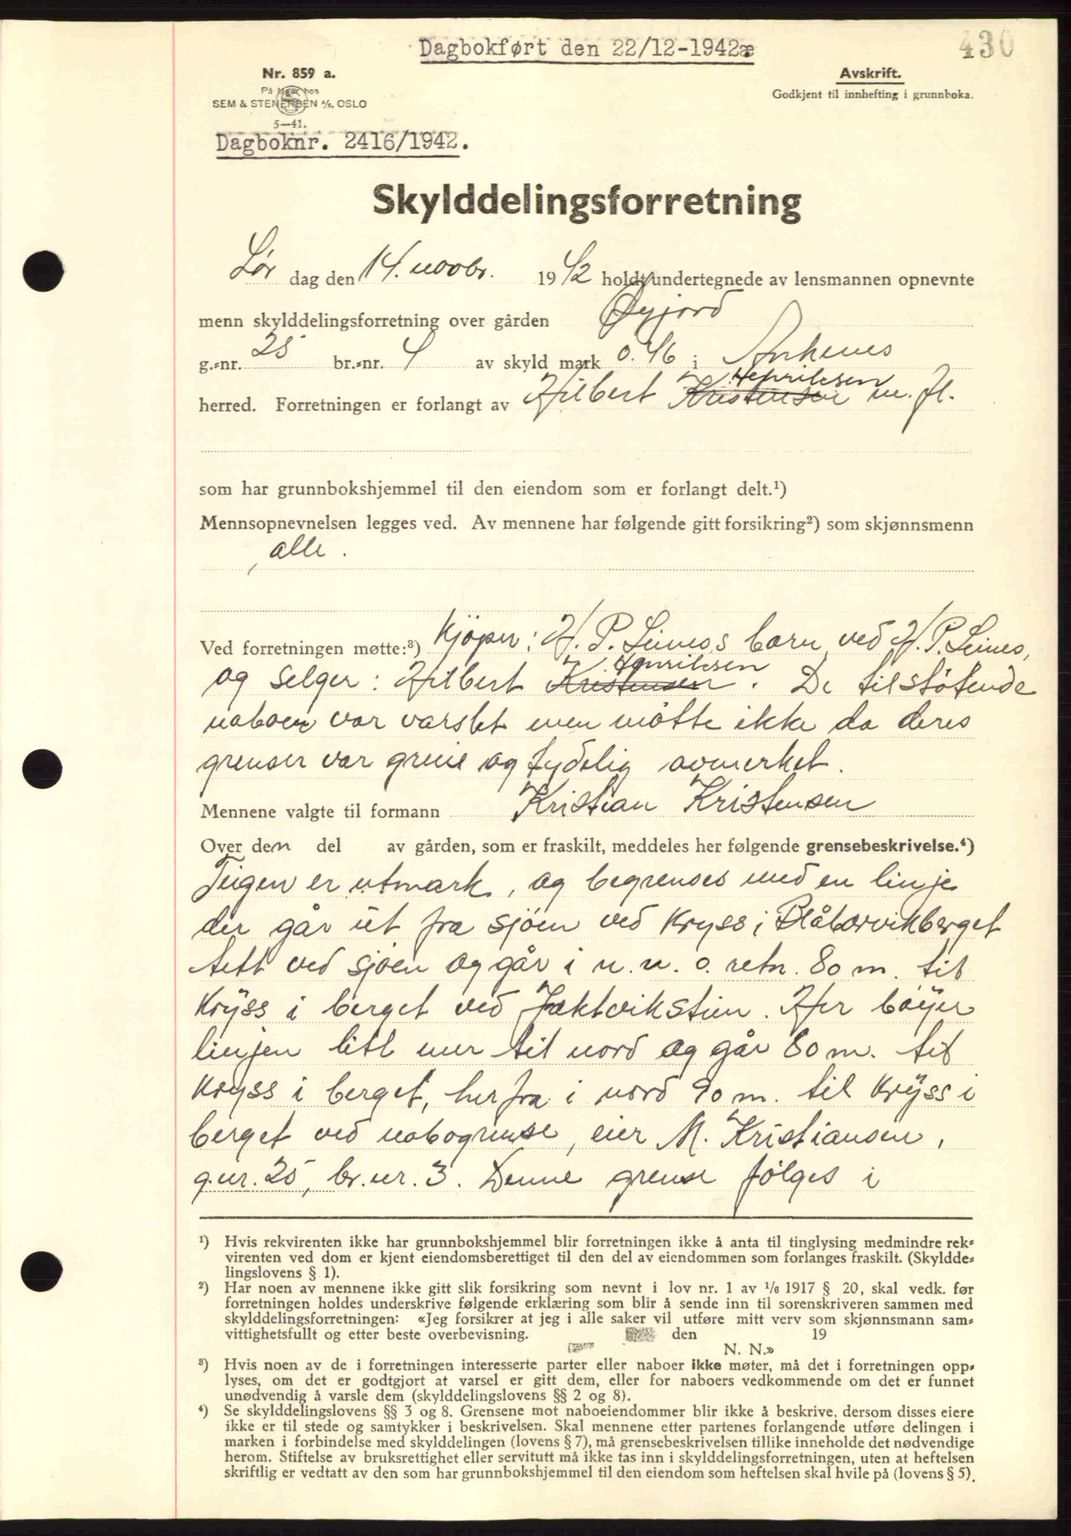 Dagbokført den 22/12-1942
430
Nr. 859 a.
På lager hos
SEM & STENERSEN A/S. OSLO
5—41.
Avskrift.
Godkjent til innhefting i grunnboka.
Dagboknr. 2416/1942.
Skylddelingsforretning
Lør dag den 14. novbr. 1942 holdt undertegnede av lensmannen opnevnte
menn skylddelingsforretning over gården Øyjord
g.-nr. 25 br.-nr. 4 av skyld mark 0.46 i Ankenes
Henriksen
herred. Forretningen er forlangt av Hilbert Kristensen m. fl.
som har grunnbokshjemmel til den eiendom som er forlangt delt.¹)
Mennsopnevnelsen legges ved. Av mennene har følgende gitt forsikring²) som skjønnsmenn
alle.
Ved forretningen møtte:³) Kjøper: H. P. Leines barn ved H. P. Leines,
Henriksen
og selger: Hilbert Kristensen. De tilstøtende
naboer var varslet men møtte ikke da deres
grenser var greie og tydelig avmerket.
Mennene valgte til formann Kristian Kristensen
Over den del av gården, som er fraskilt, meddeles her følgende grensebeskrivelse.⁴)
Teigen er utmark, og begrenses med en linje
der går ut fra sjøen ved kryss i Blåbærvikberget
tett ved sjøen og går i n. n. o. retn. 80 m. til
kryss i berget ved Jaktvikstien. Her bøyer
linjen litt mer til nord og går 80 m. til
kryss i berget, herfra i nord 90 m. til kryss i
berget ved nabogrense, eier M. Kristiansen,
g.nr. 25, br.nr. 3. Denne grense følges i
¹) Hvis rekvirenten ikke har grunnbokshjemmel blir forretningen ikke å anta til tinglysing medmindre rek-
virenten ved dom er kjent eiendomsberettiget til den del av eiendommen som forlanges fraskilt. (Skyldde-
lingslovens § 1).
²) Har noen av mennene ikke gitt slik forsikring som nevnt i lov nr. 1 av 1/6 1917 § 20, skal vedk. før
forretningen holdes underskrive følgende erklæring som blir å sende inn til sorenskriveren sammen med
skylddelingsforretningen: «Jeg forsikrer at jeg i alle saker vil utføre mitt verv som skjønnsmann sam-
vittighetsfullt og etter beste overbevisning. den 19
N. N.»
³) Hvis noen av de i forretningen interesserte parter eller naboer ikke møter, må det i forretningen opp-
lyses, om det er godtgjort at varsel er gitt dem, eller for naboers vedkommende om det er funnet
unødvendig å varsle dem (skylddelingslovens §§ 2 og 8).
⁴) Se skylddelingslovens §§ 3 og 8. Grensene mot naboeiendommer blir ikke å beskrive, dersom disses eiere
ikke er til stede og samtykker i beskrivelsen. Skal mennene etter partenes forlangende utføre delingen i
marken i forbindelse med skylddelingen (lovens § 7), må grensebeskrivelsen tillike inneholde det nødvendige
herom. Stiftelse av bruksrettighet eller servitutt må ikke tas inn i skylddelingsforretningen, uten at heftelsen
skriftlig er vedtatt av den som har grunnbokshjemmel til den eiendom som heftelsen skal hvile på (lovens § 5).